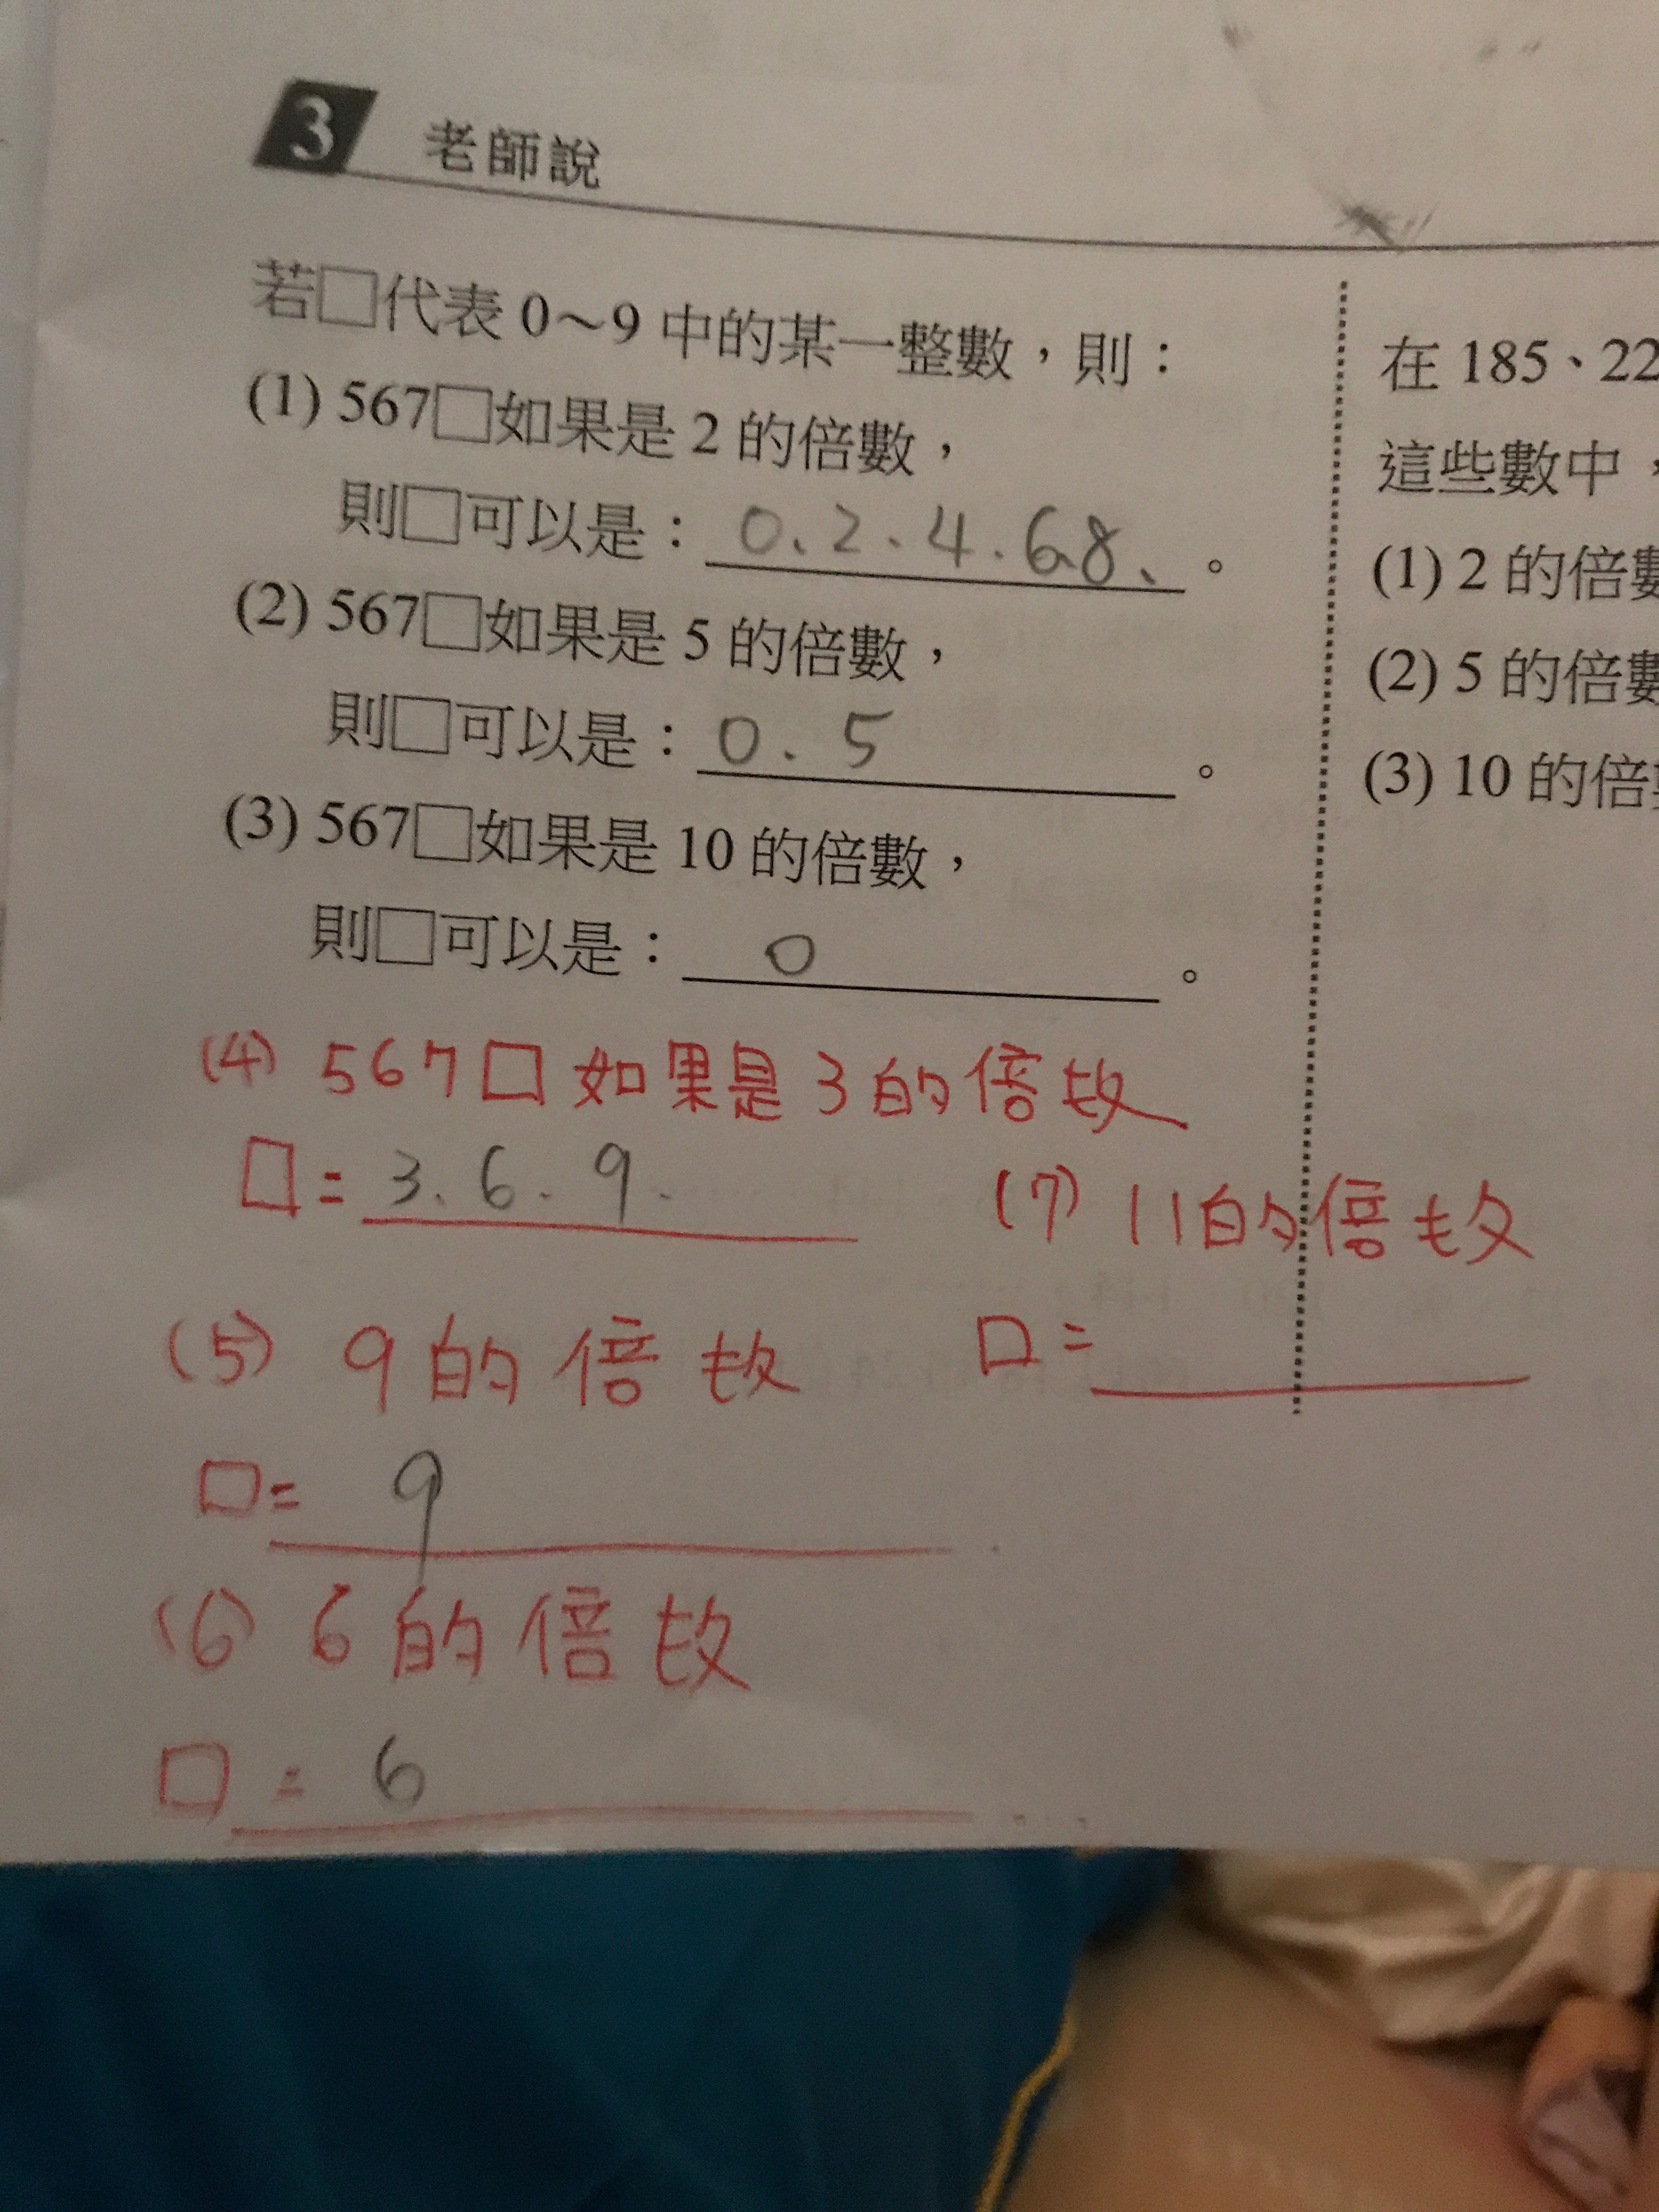 3 老師說
若□代表 0～9 中的某一整數，則：
(1) 567□如果是 2 的倍數，
則□可以是：0、2、4、6、8、。
(2) 567□如果是 5 的倍數，
則□可以是：0、5。
(3) 567□如果是 10 的倍數，
則□可以是：0。
(4) 567□如果是3的倍数
□=3、6、9、
(5) 9的倍数
□=9
(6) 6的倍数
□=6
(7) 11的倍数
□=
在 185、22
這些數中，
(1) 2 的倍數
(2) 5 的倍數
(3) 10 的倍數